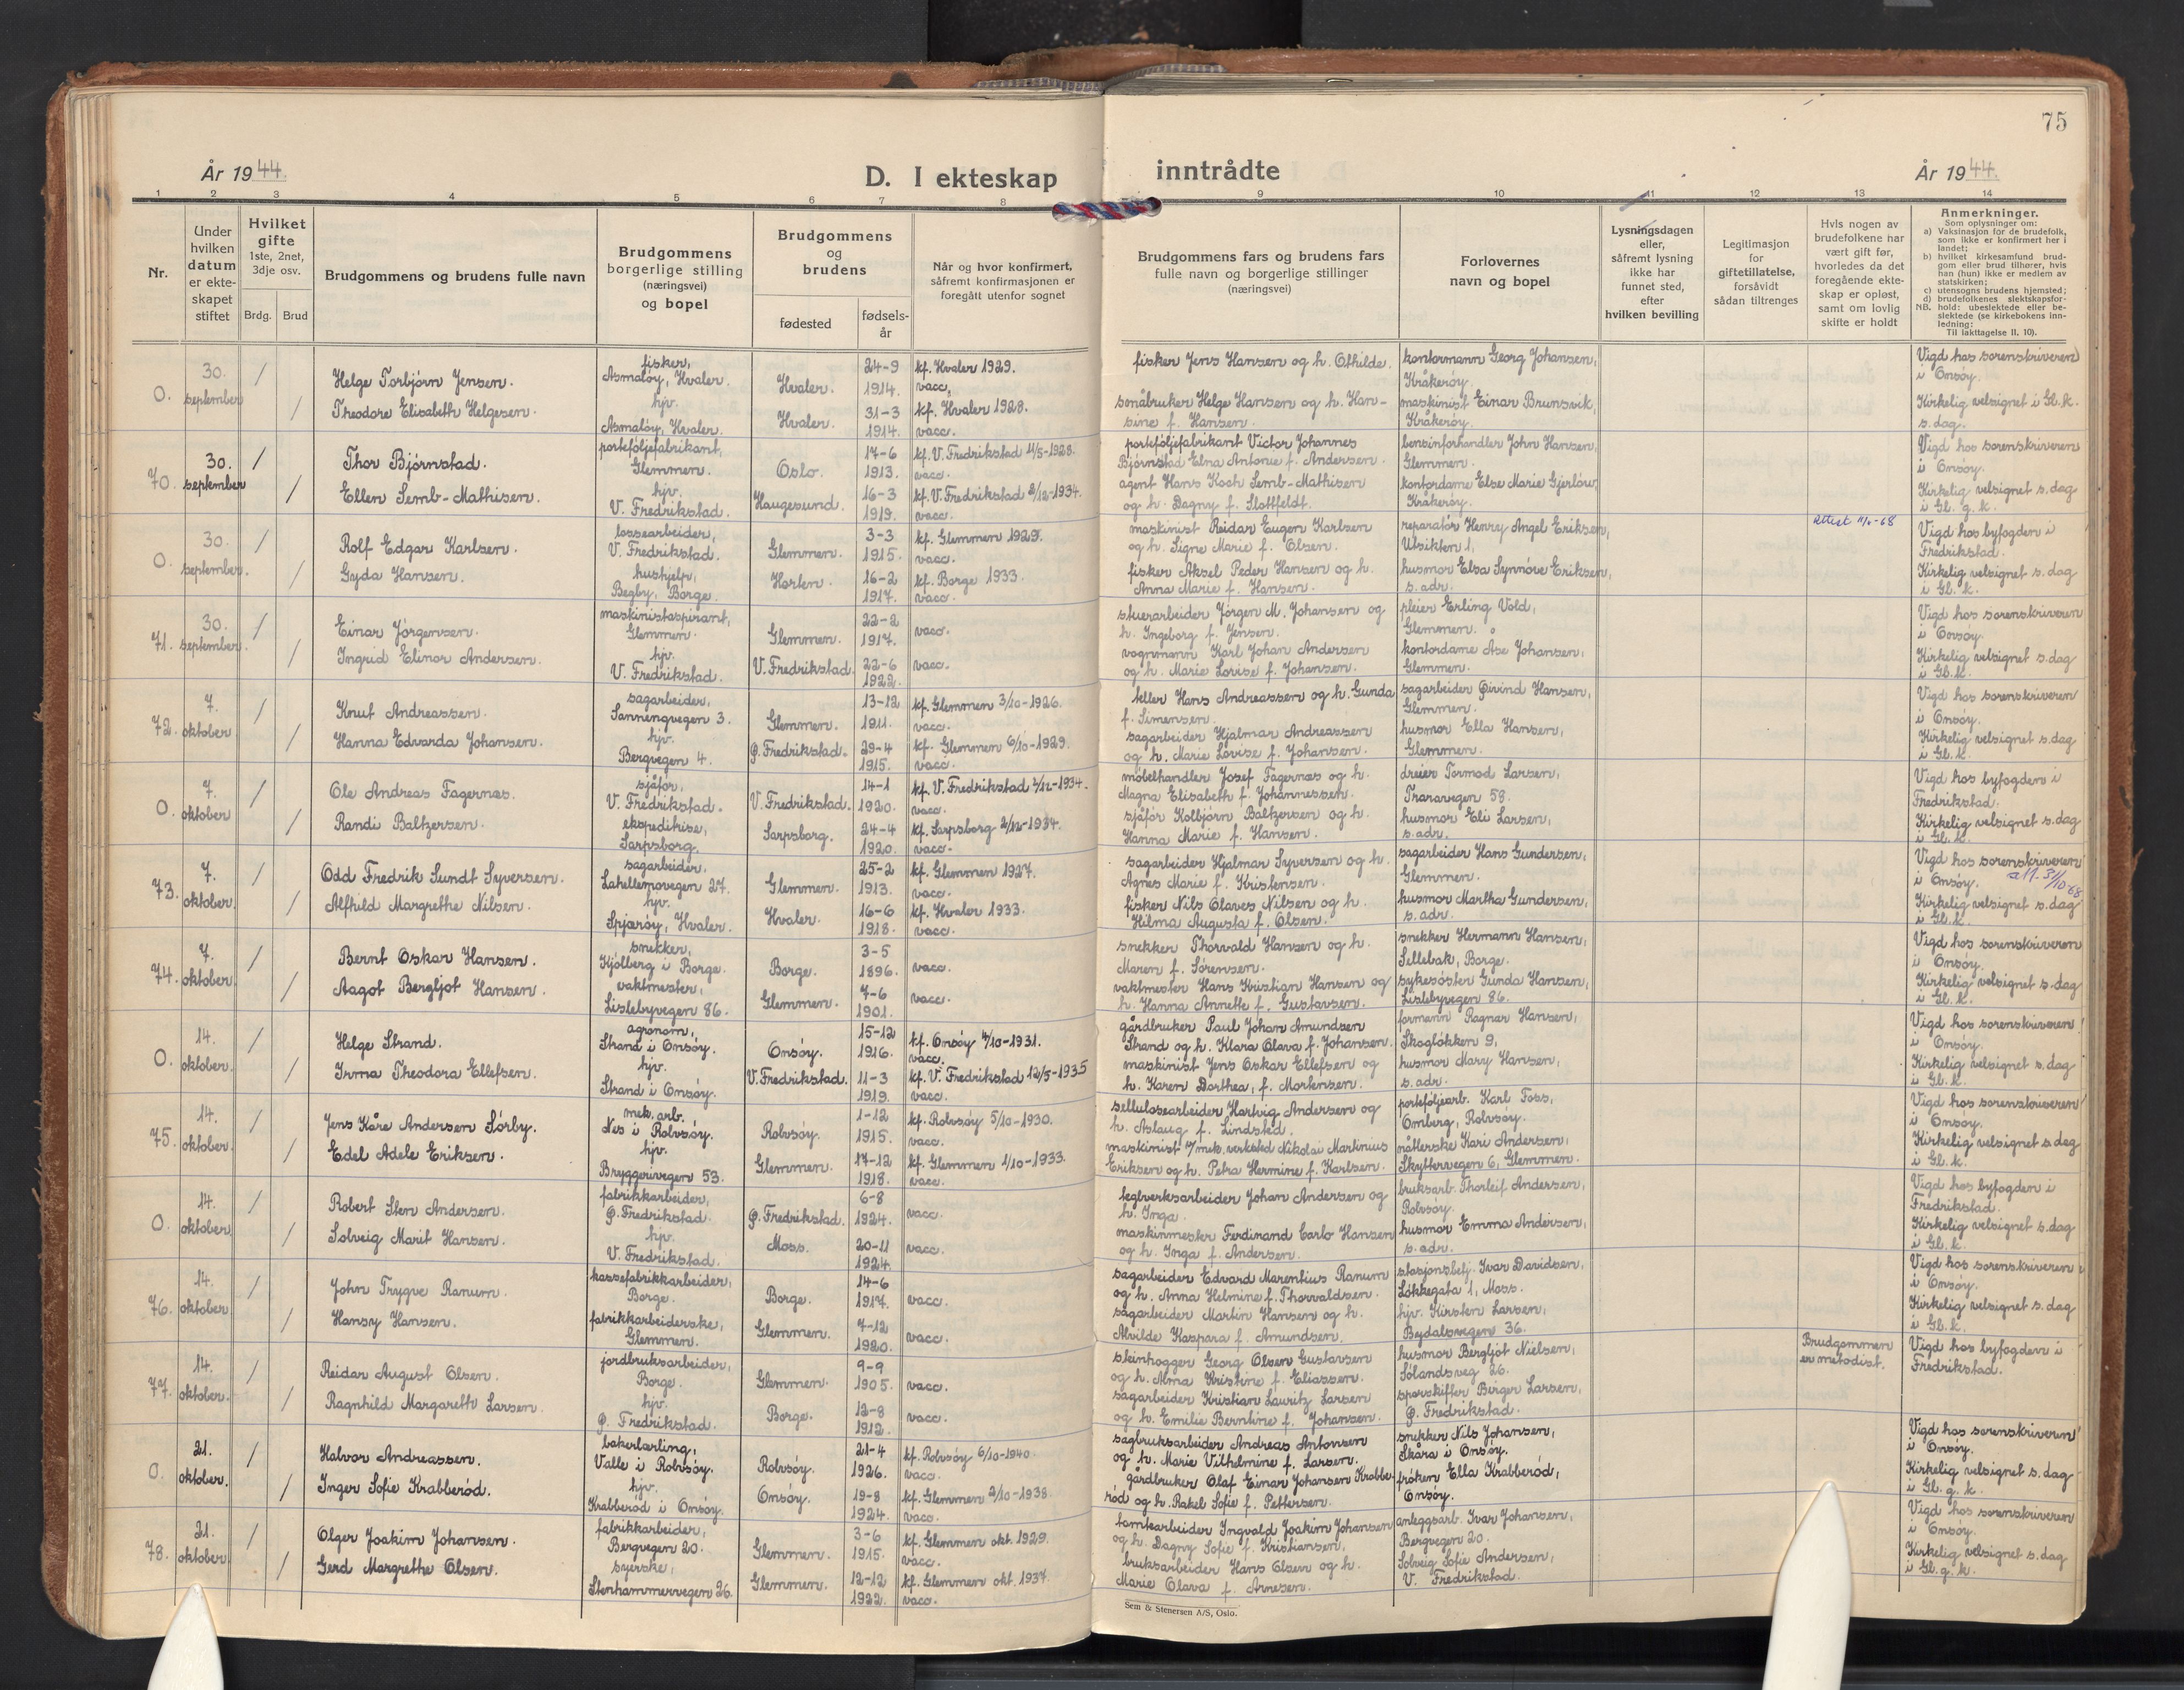 75
År 1944.
D. I ekteskap inntrådte
År 1944.
1 2 3 4 5 6 7 8 9 10 11 12 13 14
Nr.
Under
hvilken
datum
er ekte-
skapet
stiftet
Hvilket
gifte
1ste, 2net,
3dje osv.
Brdg. Brud
Brudgommens og brudens fulle navn
Brudgommens
borgerlige stilling
(næringsvei)
og bopel
Brudgommens
og
brudens
fødested
fødsels-
år
Når og hvor konfirmert,
såfremt konfirmasjonen er
foregått utenfor sognet
Brudgommens fars og brudens fars
fulle navn og borgerlige stillinger
(næringsvei)
Forlovernes
navn og bopel
Lysningsdagen
eller,
såfremt lysning
ikke har
funnet sted,
efter
hvilken bevilling
Legitimasjon
for
giftetillatelse,
forsåvidt
sådan tiltrenges
Hvis nogen av
brudefolkene har
vært gift før,
hvorledes da det
foregående ekte-
skap er opløst,
samt om lovlig
skifte er holdt
Anmerkninger.
Som oplysninger om:
a) Vaksinasjon for de brudefolk,
som ikke er konfirmert her i
landet;
b) hvilket kirkesamfund brud-
gom eller brud tilhører, hvis
han (hun) ikke er medlem av
statskirken;
c) utensogns brudens hjemsted;
d) brudefolkenes slektskapsfor-
hold: ubeslektede eller be-
slektede (se kirkebokens inn-
ledning:
NB. Til iakttagelse II, 10).
0. 30. september / /
Helge Torbjørn Jensen.
Theodore Elisabeth Helgesen.
fisker,
Asmaløy, Hvaler.
hjv.
Asmaløy, Hvaler.
Hvaler. 24-9 1914.
Hvaler. 31-3 1914.
kf. Hvaler 1929.
vacc.
kf. Hvaler 1928.
vacc.
fisker Jens Hansen og h. Othilde.
småbruker Helge Hansen og h. Han-
sine f. Hansen.
kontormann Georg Johansen,
Kråkerøy.
maskinist Einar Brunsvik,
Kråkerøy.
Vigd hos sorenskriveren
i Onsøy.
Kirkelig velsignet i Gl. k.
s. dag.
70. 30. september / /
Thor Bjørnstad.
Ellen Semb-Mathisen.
porteføljefabrikant,
Glemmen.
hjv.
V. Fredrikstad.
Oslo. 17-6 1913.
Haugesund. 16-3 1919.
kf. V. Fredrikstad 11/5-1928.
vacc.
kf. V. Fredrikstad 2/12-1934.
vacc.
porteføljefabrikant Victor Johannes
Bjørnstad Elna Antonie f. Andersen.
agent Hans Koch Semb-Mathisen
og h. Dagny f. Slottfeldt.
bensinforhandler John Hansen,
Glemmen.
kontordame Else Marie Gjerløw,
Kråkerøy.
Vigd hos sorenskriveren
i Onsøy.
Kirkelig velsignet s. dag
i Gl. g. k.
0. 30. september. / /
Rolf Edgar Karlsen.
Gyda Hansen.
lossearbeider,
V. Fredrikstad.
hushjelp,
Begby, Borge.
Glemmen. 3-3 1915.
Horten. 16-2 1917.
kf. Glemmen 1929.
vacc.
kf. Borge 1933.
vacc.
maskinist Reidar Eugen Karlsen
og h. Signe Marie f. Olsen.
fisker Aksel Peder Hansen og h.
Anna Marie f. Hansen.
reparatør Henry Angel Eriksen,
Utsikten 1,
husmor Elsa Synnöve Eriksen,
s. adr.
Vigd hos byfogden i
Fredrikstad.
Kirkelig velsignet s. dag
i Gl. k.
71. 30. september. / /
Einar Jørgensen.
Ingrid Elinor Andersen.
maskinistaspirant,
Glemmen.
hjv.
V. Fredrikstad.
Glemmen. 22-2 1917.
V. Fredrikstad. 22-6 1922.
vacc.
vacc.
stuerarbeider Jørgen M. Johansen og
h. Ingeborg f. Jensen.
vognmann Karl Johan Andersen
og h. Marie Lovise f. Johansen.
pleier Erling Vold,
Glemmen.
kontordame Åse Johansen,
Glemmen.
Vigd hos sorenskriveren
i Onsøy.
Kirkelig velsignet s. dag
i Gl. k.
72. 7. oktober / /
Knut Andreassen.
Hanna Edvarda Johansen.
sagarbeider,
Sannengvegen 3.
hjv.
Bergvegen 4.
Glemmen. 13-12 1911.
Ø. Fredrikstad. 29-4 1915.
kf. Glemmen 3/10-1926.
vacc.
kf. Glemmen 6/10-1929.
vacc.
teller Hans Andreassen og h. Gunda
f. Simensen.
sagarbeider Hjalmar Andreassen
og h. Marie Lovise f. Johansen.
sagarbeider Øivind Hansen,
Glemmen.
husmor Ella Hansen,
Glemmen.
Vigd hos sorenskriveren
i Onsøy.
Kirkelig velsignet s. dag
i Gl. k.
0. 7. oktober / /
Ole Andreas Fagernæs.
Randi Baltzersen.
sjåfør,
V. Fredrikstad.
ekspeditrise,
Sarpsborg.
V. Fredrikstad. 14-1 1920.
Sarpsborg. 24-4 1920.
kf. V. Fredrikstad 2/12-1934.
vacc.
kf. Sarpsborg 2/12-1934.
vacc.
møbelhandler Josef Fagernæs og h.
Magna Elisabeth f. Johannessen.
sjåfør Kolbjørn Baltzersen og h.
Hanna Marie f. Hansen.
dreier Tormod Larsen,
Traravegen 58.
husmor Eli Larsen,
s. adr.
Vigd hos byfogden i
Fredrikstad.
Kirkelig velsignet s. dag
i Gl. k.
73. 7. oktober. / /
Odd Fredrik Sundt Syversen.
Alfhild Margrethe Nilsen.
sagarbeider,
Lahellemovegen 27.
hjv.
Spjærøy, Hvaler.
Glemmen. 25-2 1913.
Hvaler. 16-6 1918.
kf. Glemmen 1927.
vacc.
kf. Hvaler 1933.
vacc.
sagarbeider Hjalmar Syversen og h.
Agnes Marie f. Kristensen.
fisker Nils Olaves Nilsen og h.
Hilma Augusta f. Olsen.
sagarbeider Hans Gundersen,
Glemmen.
husmor Martha Gundersen,
s. adr.
Vigd hos sorenskriveren
i Onsøy. att. 31/10 68
Kirkelig velsignet s. dag
i Gl. k.
74. 7. oktober. / /
Bernt Oskar Hansen.
Aagot Bergljot Hansen.
snekker,
Kjølberg i Borge.
vaktmester,
Lislebyvegen 86.
Borge. 3-5 1896.
Glemmen. 7-6 1901.
vacc.
vacc.
snekker Thorvald Hansen og h.
Maren f. Sørensen.
vaktmester Hans Kristian Hansen og
h. Hanna Annette f. Gustavsen.
snekker Hermann Hansen,
Sellebak, Borge.
sykesøster Gunda Hansen,
Lislebyvegen 86.
Vigd hos sorenskriveren
i Onsøy.
Kirkelig velsignet s. dag
i Gl. k.
0. 14. oktober. / /
Helge Strand.
Irma Theodora Ellefsen.
agronom,
Strand i Onsøy.
hjv.
Strand i Onsøy.
Onsøy. 15-12 1916.
V. Fredrikstad. 11-3 1919.
kf. Onsøy 4/10-1931.
vacc.
kf. V. Fredrikstad 12/5-1935
vacc.
gårdbruker Paul Johan Amundsen
Strand og h. Klara Olava f. Johansen.
maskinist Jens Oskar Ellefsen og
h. Karen Dorthea, f. Mortensen.
formann Ragnar Hansen,
Skogløkken 9,
husmor Mary Hansen,
s. adr.
Vigd hos sorenskriveren
i Onsøy.
Kirkelig velsignet s. dag
i Gl. k.
75. 14. oktober. / /
Jens Kåre Andersen Sørby.
Edel Adele Eriksen.
mek. arb.
Nes i Rolvsøy.
hjv.
Bryggerivegen 53.
Rolvsøy. 1-12 1915.
Glemmen. 17-12 1918.
kf. Rolvsøy 5/10-1930.
vacc.
kf. Glemmen 1/10-1933.
vacc.
sellulosearbeider Hartvig Andersen og
h. Aslaug f. Lindsted.
maskinist v/mek. verksted Nikolai Martinius
Eriksen og h. Petra Hermine f. Karlsen.
porteføljearb. Karl Foss,
Omberg, Rolvsøy.
nåtlerske Kari Andersen,
Skyttervegen 6, Glemmen.
Vigd hos sorenskriveren
i Onsøy.
Kirkelig velsignet s. dag
i Gl. k.
0. 14. oktober / /
Robert Sten Andersen.
Solveig Marit Hansen.
fabrikkarbeider,
Ø. Fredrikstad.
hjv.
V. Fredrikstad.
Ø. Fredrikstad. 6-8 1924.
Moss. 20-11 1924.
vacc.
vacc.
teglverksarbeider Johan Andersen og
h. Inga.
maskinmester Ferdinand Carlo Hansen
og h. Inga f. Andersen.
bruksarb. Thorleif Andersen,
Rolvsøy.
husmor Emma Andersen,
s. adr.
Vigd hos byfogden i
Fredrikstad.
Kirkelig velsignet s. dag
i Gl. k.
76. 14. oktober. / /
John Trygve Ranum.
Hansy Hansen.
kassefabrikkarbeider,
Borge.
fabrikkarbeiderske,
Glemmen.
Borge. 14-6 1917.
Glemmen. 7-12 1920.
vacc.
vacc.
sagarbeider Edvard Marentius Ranum
og h. Anna Helmine f. Thorvaldsen.
sagarbeider Martin Hansen og h.
Alvilde Kaspara f. Amundsen.
stasjonsbetj. Ivar Davidsen,
Løkkegata 1, Moss.
hjv. Kirsten Larsen,
36.
Vigd hos sorenskriveren
i Onsøy.
Kirkelig velsignet s. dag
i Gl. k.
77. 14. oktober. / /
Reidar August Olsen.
Ragnhild Margareth Larsen.
jordbruksarbeider,
Borge.
hjv.
Ø. Fredrikstad.
Glemmen. 9-9 1905.
Borge. 12-8 1912.
vacc.
vacc.
steinhogger Georg Olsen Gustavsen
og h. Alma Kristine f. Eliassen.
sagarbeider Kristian Lauritz Larsen
og h. Emilie Berntine f. Johansen.
husmor Bergljot Nielsen,
Sølandsveg 26.
sporskifter Birger Larsen,
Ø. Fredrikstad.
Brudgommen
er metodist.
Vigd hos byfogden i
Fredrikstad.
0. 21. oktober. / /
Halvor Andreassen.
Inger Sofie Krabberød.
bakerlærling,
Valle i Rolvsøy.
hjv.
Krabberød i Onsøy.
Rolvsøy. 21-4 1926.
Onsøy. 19-8 1924.
kf. Rolvsøy 6/10-1940.
vacc.
kf. Glemmen 2/10-1938.
vacc.
sagbruksarbeider Andreas Antonsen
og h. Marie Vilhelmine f. Larsen.
gårdbruker Olaf Einar Johansen Krabbe-
rød og h. Rakel Sofie f. Pettersen.
snekker Nils Johansen,
Skåra i Onsøy.
frøken Ella Krabberød,
Onsøy.
Vigd hos sorenskriveren
i Onsøy.
Kirkelig velsignet s. dag
i Gl. g. k.
78. 21. oktober. / /
Olger Joakim Johansen.
Gerd Margrethe Olsen.
fabrikkarbeider,
Bergvegen 20.
syerske,
Stenhammervegen 26.
Glemmen. 3-6 1915.
Glemmen. 12-12 1922.
kf. Glemmen okt. 1929.
vacc.
kf. Glemmen okt. 1937.
vacc.
tomtearbeider Ingvald Joakim Johansen
og h. Dagny Sofie f. Kristiansen,
bruksarbeider Hans Olsen og h.
Marie Olava f. Arnesen.
anleggsarb. Ivar Johansen,
Bergvegen 20.
Solveig Sofie Andersen,
V. Fredrikstad.
Vigd hos sorenskriveren
i Onsøy.
Kirkelig velsignet s. dag
i Gl. g. k.
Sem & Stenersen A/S, Oslo.